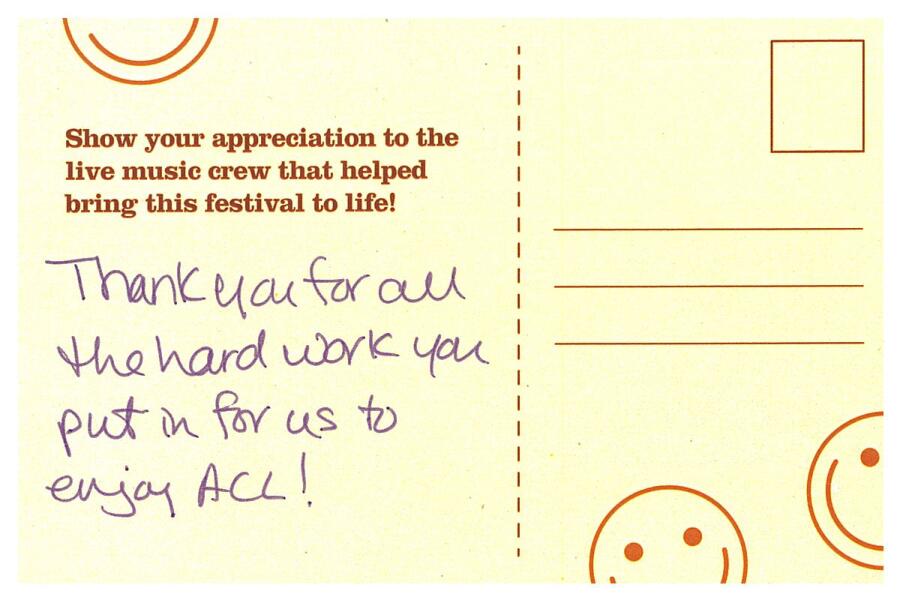 Show your appreciation to the
live music crew that helped
bring this festival to life!
Thank you for all
the hard work you
put in for us to
enjoy ACL!